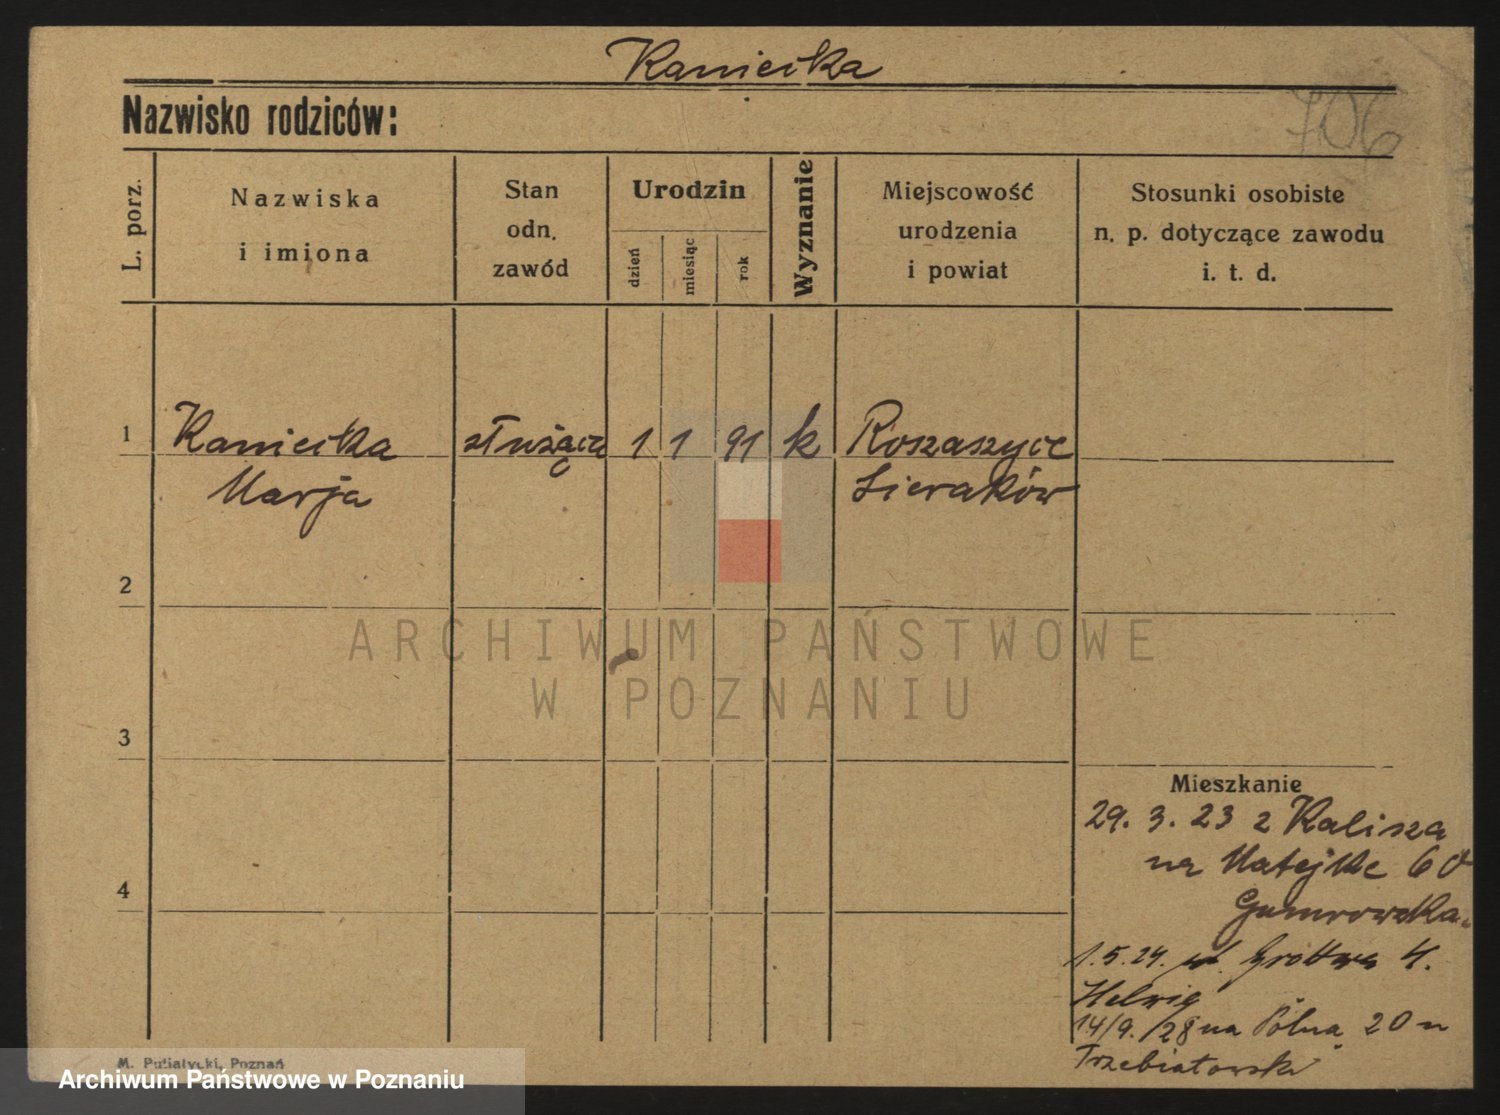 Kaniecka
706
Nazwisko rodziców:
L. porz.
Nazwiska
i imiona
Stan
odn.
zawód
Urodzin
dzień
miesiąc
rok
Wyznanie
Miejscowość
urodzenia
i powiat
Stosunki osobiste
n. p. dotyczące zawodu
i. t. d.
1
Kaniecka
Marja
służąca
1 1 91 k
Roszaszyce
Sieraków
2
ARCHIWUM PAŃSTWOWE
W POZNANIU
3
Mieszkanie
29. 3. 23 z Kalisza
na Matejke 60
4
1.5.24. Grottgera 4.
Helwig
14/9./28 na Polna 20 u
Trzebiatowski
M. Putiatycki, Poznań
Archiwum Państwowe w Poznaniu